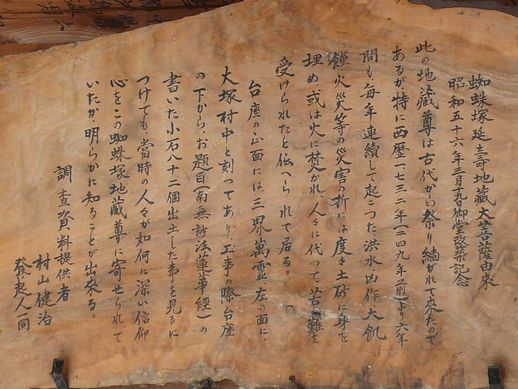 蜘蛛塚延寿地蔵大菩薩由来
昭和五十六年三月吉日御堂改築記念
此の地蔵尊は古代から祭り継がれて来たので
あるが特に西歴一七三二年(二四九年前)より六年
間も毎年連続して起こつた洪水凶作大飢
饉火災等の災害の折には度々土砂に身を
埋め或は火に焚かれ人々に代って苦難を
受けられたと伝へられて居る。
台座の正面には三界萬霊、左の面に、
大塚村中と刻つてあり、工事の際台座
の下から、お題目(南無妙法蓮華経)の
書いた小石八十二個出土した事を見るに
つけても、当時の人々が如何に深い信仰
心をこの蜘蛛塚地蔵尊に寄せられて
いたか、明らかに知ることが出来る。
調査資料提供者
村山健治
発起人一同